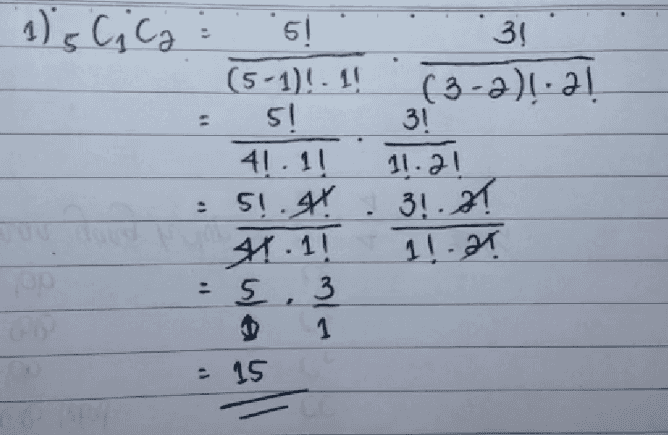 1) 5 C1 C2 = 5! / (5-1)! . 1! . 3! / (3-2)! . 2!
= 5! / 4! . 1! . 3! / 1! . 2!
= 5! . 4! / 4! . 1! . 3! . 2! / 1! . 2!
= 5 / 1 . 3 / 1
= 15